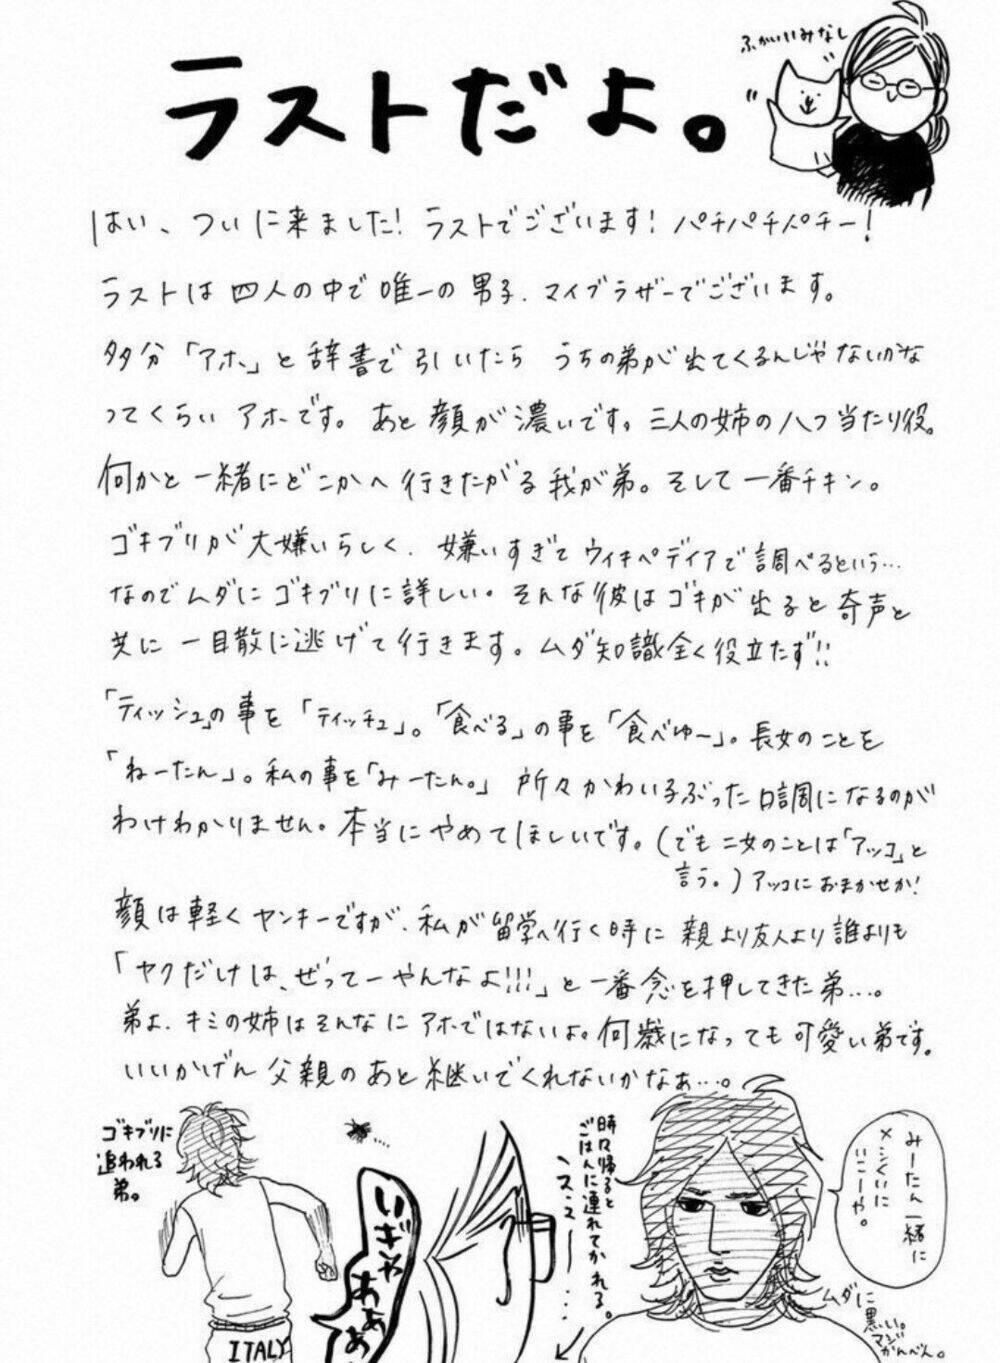 ラストだよ。
ふかいいみなし
はい、ついに来ました!ラストでございます!パチパチパチー!
ラストは四人の中で唯一の男子、マイブラザーでございます。
多分「アホ」と辞書で引いたら うちの弟が出てくるんじゃないかな
ってくらいアホです。あと顔が濃いです。三人の姉の八つ当たり役。
何かと一緒にどこかへ行きたがる我が弟。そして一番チキン。
ゴキブリが大嫌いらしく、嫌いすぎてウィキペディアで調べるという…
なのでムダにゴキブリに詳しい。そんな彼はゴキが出ると奇声と
共に一目散に逃げて行きます。ムダ知識全く役立たず!!
「ティッシュ」の事を「ティッチュ」。「食べる」の事を「食べゆー」。長女のことを
「ねーたん」。私の事を「みーたん。」所々かわい子ぶった口調になるのが
わけわかりません。本当にやめてほしいです。(でも二女のことは「アッコ」と
言う。)アッコにおまかせか!
顔は軽くヤンキーですが、私が留学へ行く時に親より友人より誰よりも
「ヤクだけは、ぜってーやんなよ!!!」と一番念を押してきた弟…。
弟よ、キミの姉はそんなにアホではないよ。何歳になっても可愛い弟です。
いいかげん父親のあと継いでくれないかなぁ…。
ゴキブリに
追われる
弟。
いぎゃ
ああ
あ
ITALY
時々帰ると
ごはんに連れてかれる。
スュー…
みーたん一緒に
メシくいに
いこーや。
ムダに
黒い。
マジ
かんべん。